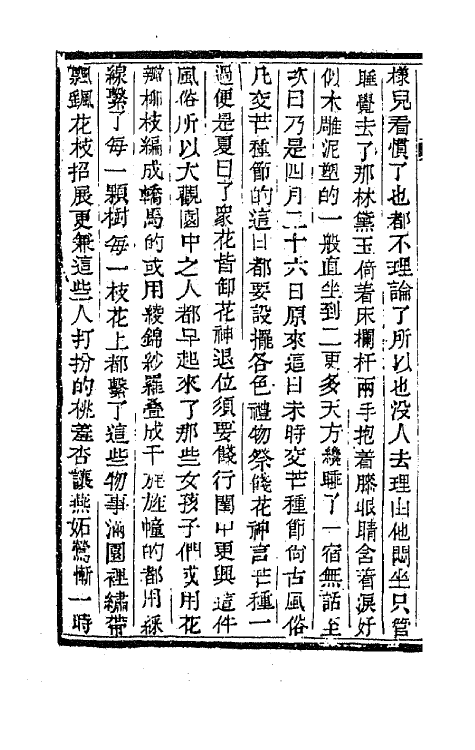 樣兒看慣了也都不理論了所以也没人去理由他悶坐只管
睡覺去了那林黛玉倚着床欄杆兩手抱着膝眼睛含着淚好
似木雕泥塑的一般直坐到二更多天方纔睡了一宿無話至
次日乃是四月二十六日原來這日未時交芒種節尙古風俗
凡交芒種節的這日都要設擺各色禮物祭餞花神言芒種一
過便是夏日了衆花皆卸花神退位須要餞行閨中更興這件
風俗所以大觀園中之人都早起來了那些女孩子們或用花
瓣柳枝編成轎馬的或用綾錦紗羅疊成干旄旌幢的都用綵
線繫了每一顆樹每一枝花上都繫了這些物事滿園裡繡帶
飄飖花枝招展更兼這些人打扮的桃羞杏讓燕妬鶯慚一時